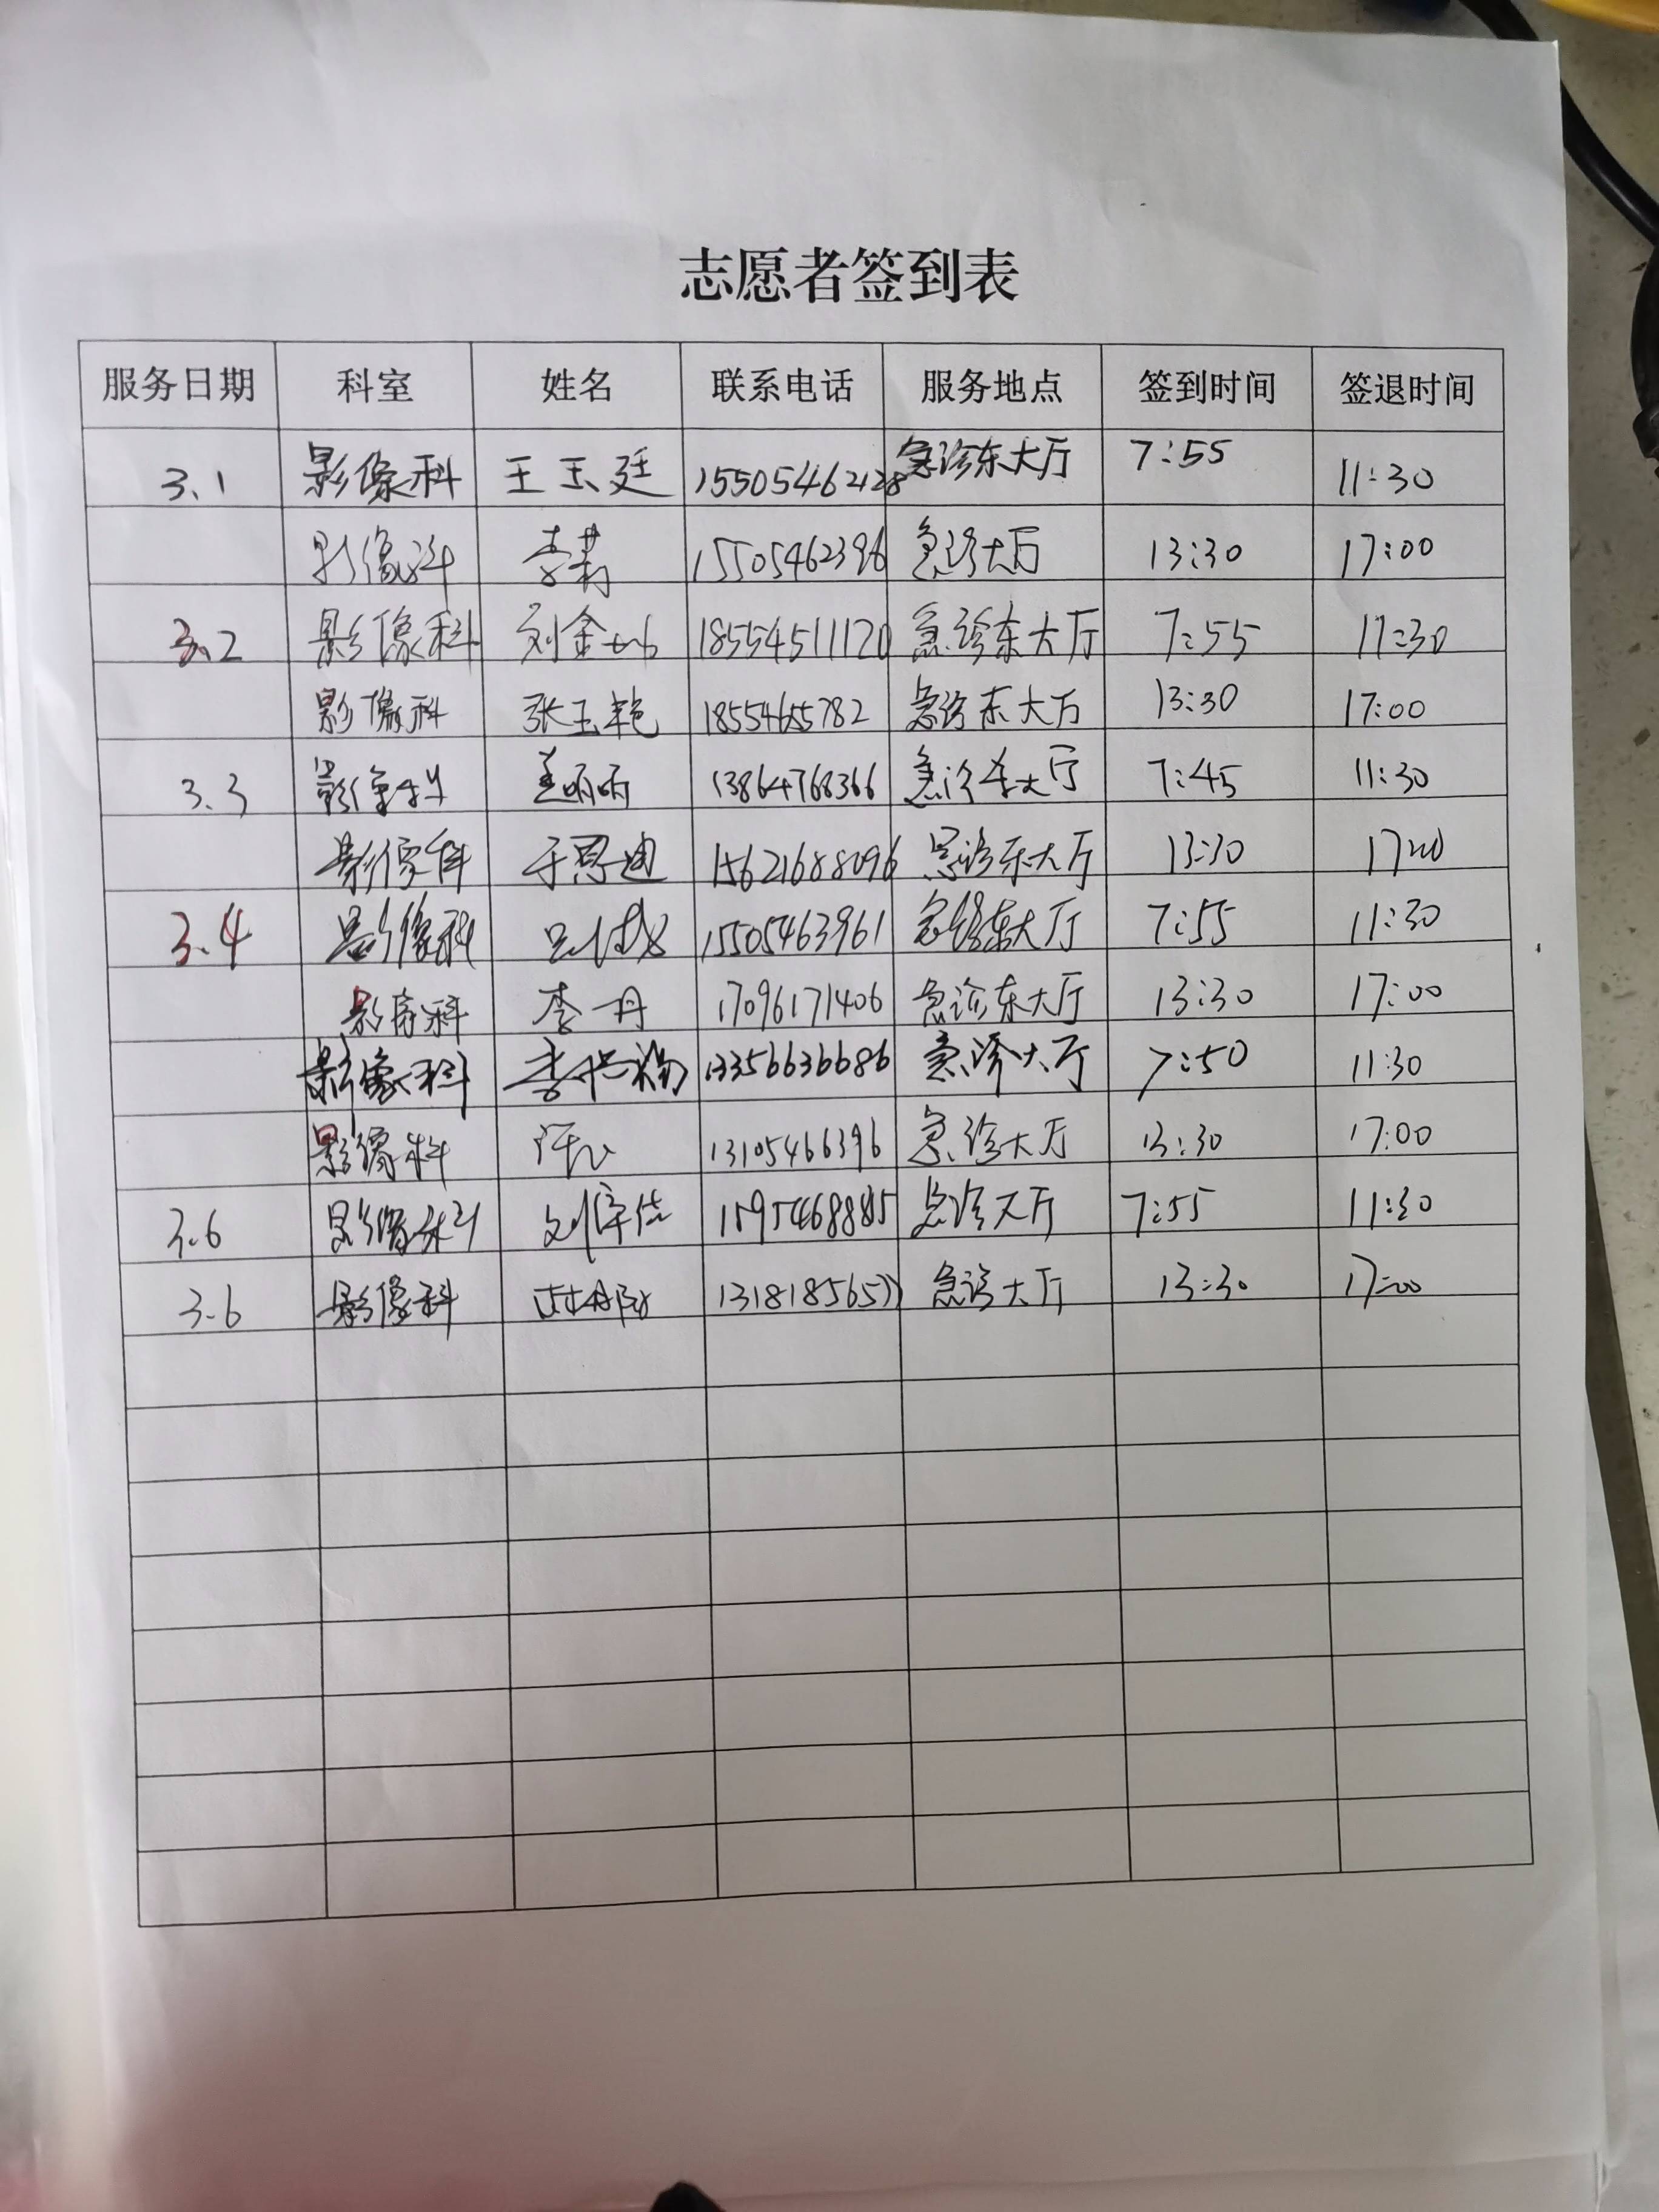 志愿者签到表
服务日期 科室 姓名 联系电话 服务地点 签到时间 签退时间
3.1 影像科 王玉廷 15505462128 急诊东大厅 7:55 11:30
影像科 李莉 15505462396 急诊大厅 13:30 17:00
3.2 影像科 刘金 18554511170 急诊东大厅 7:55 11:30
影像科 张玉艳 1855465782 急诊东大厅 13:30 17:00
3.3 影像科 13864768366 急诊东大厅 7:45 11:30
影像科 于恩迪 15621688096 急诊东大厅 13:30
3.4 影像科 15505463961 急诊东大厅 7:55 11:30
影像科 李丹 17096171406 急诊东大厅 13:30 17:00
影像科 李 13356636686 急诊大厅 7:50 11:30
影像科 13105466396 急诊大厅 13:30 17:00
3.6 影像科 刘 急诊大厅 7:55 11:30
3.6 影像科 急诊大厅 13:30 17:00